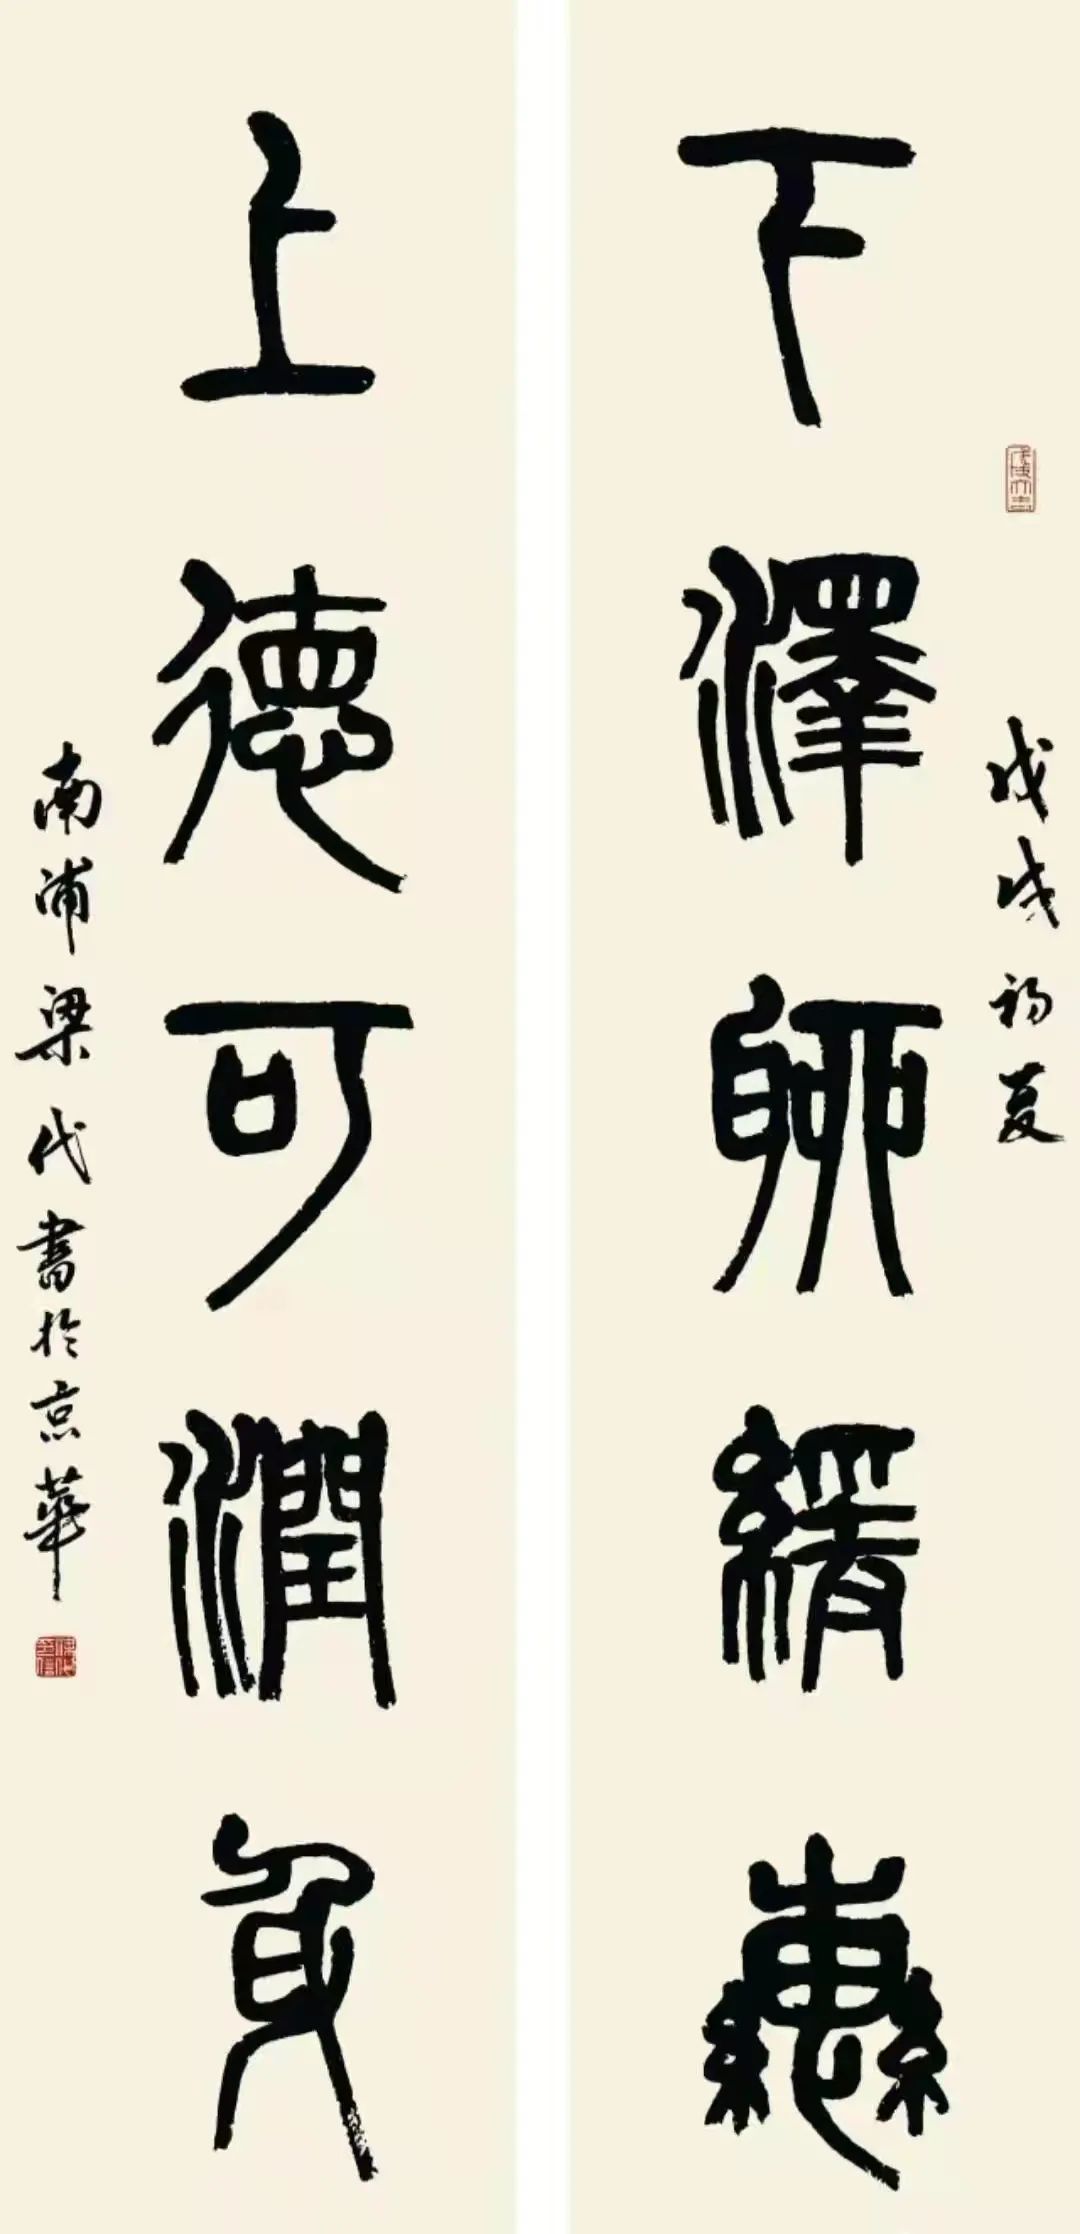 戊戌初夏
下澤聊緩轡
上德可潤身
南浦梁代書於京華